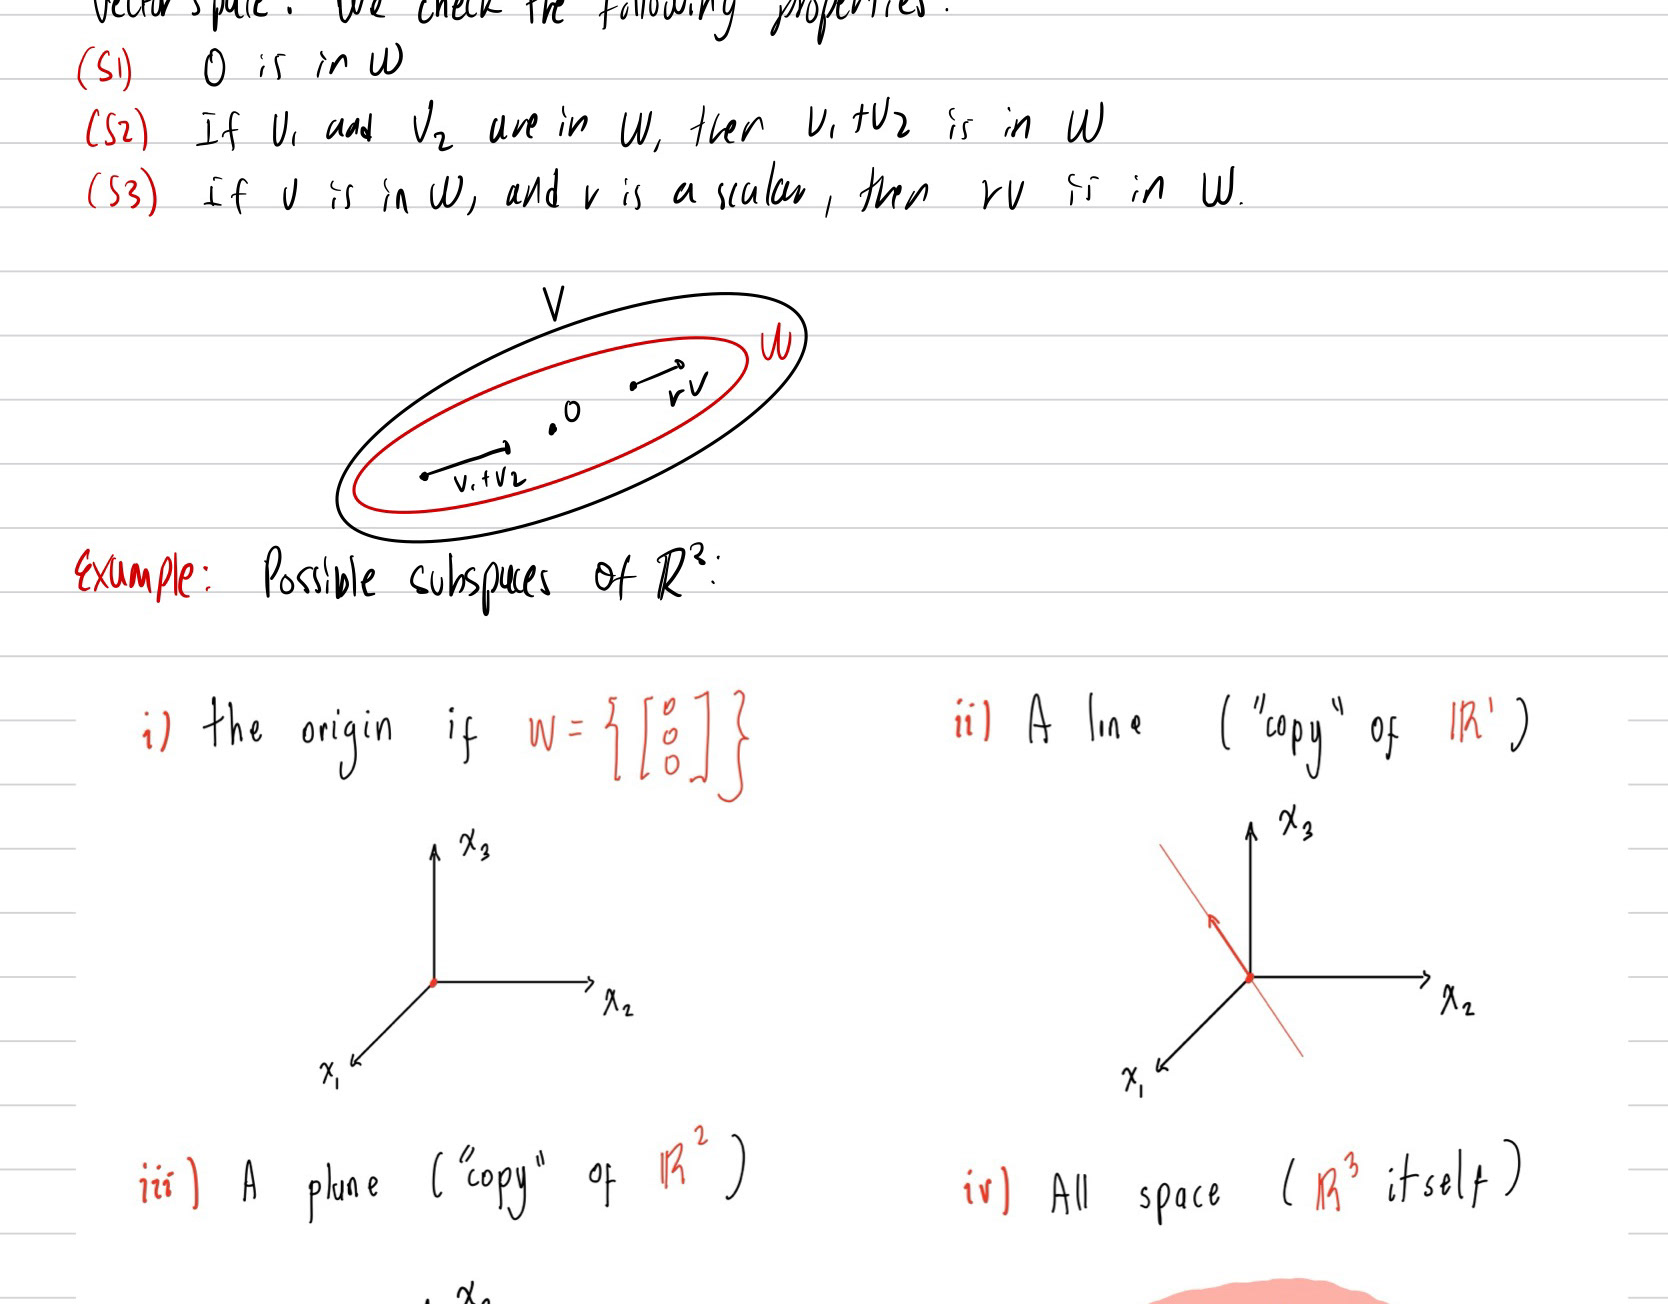 vector space. We check the following properties:
(S1) 0 is in W
(S2) If V₁ and V₂ are in W, then V₁+V₂ is in W
(S3) If V is in W, and r is a scalar, then rV is in W.
V
W
rV
0
V₁+V₂
Example: Possible subspaces of ℝ³:
i) the origin if W = {[0 0 0]}
ii) A line ("copy" of ℝ¹)
x₃
x₂
x₁
x₃
x₂
x₁
iii) A plane ("copy" of ℝ²)
iv) All space (ℝ³ itself)